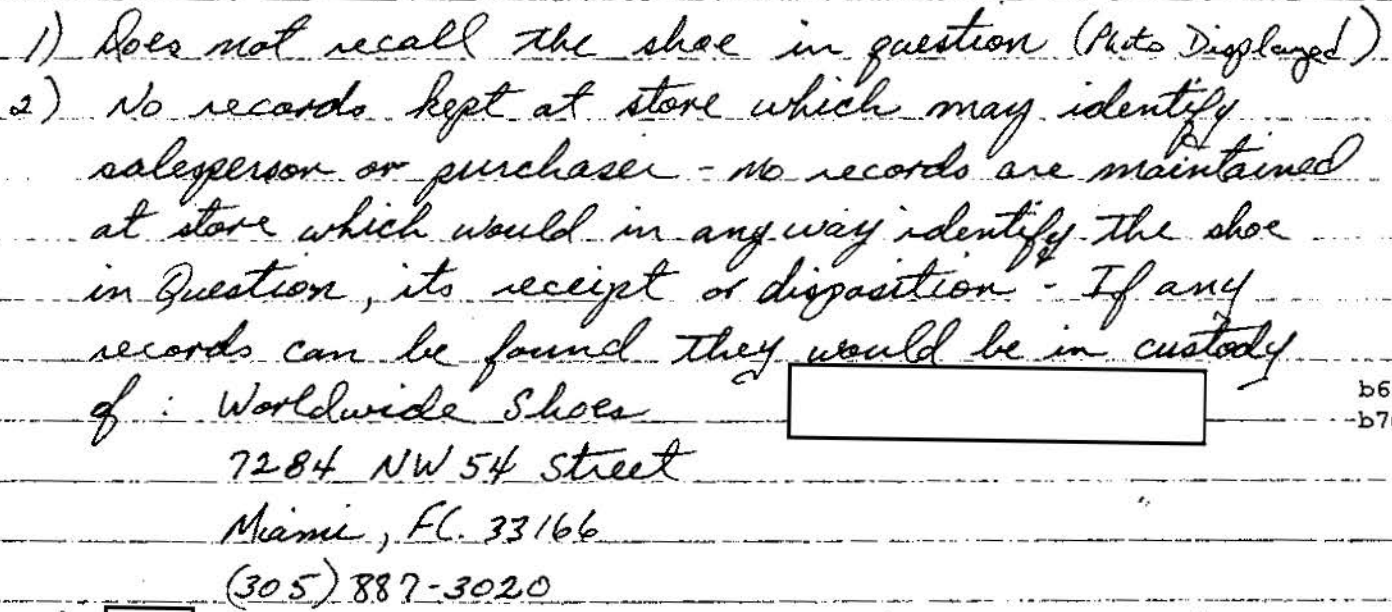 1) Does not recall the shoe in question (Photo Displayed)
2) No records kept at store which may identify
salesperson or purchaser - no records are maintained
at store which would in anyway identify the shoe
in Question, its receipt or disposition - If any
records can be found they would be in custody
of : Worldwide Shoes
b6
7284 NW 54 Street
Miami, Fl. 33166
(305) 887-3020